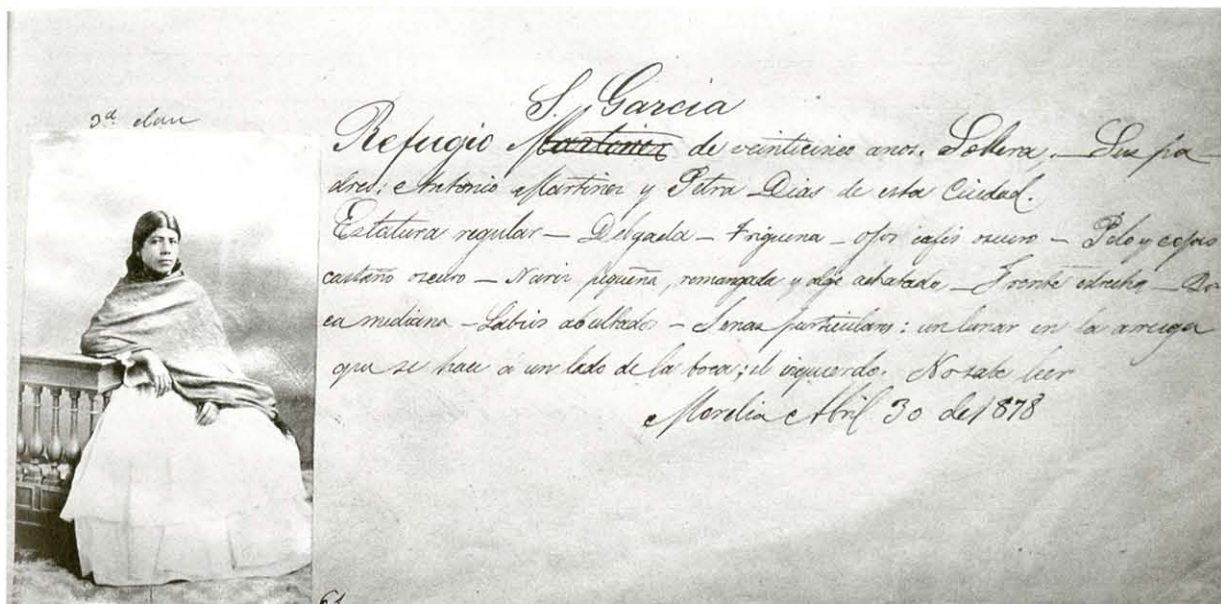 3ª clase
S. Garcia
Refugio Martinez de veinticinco anos. Soltera. — Sus pa-
dres: Antonio Martinez y Petra Dias de esta Ciudad.
Estatura regular — Delgada — Triguena — ojos cafés oscuro — Pelo y cejas
castaño oscuro — Nariz pequeña, remangada y algo achatada — Frente estrecha — Bo-
ca mediana — Labios abultados — Senas particulares: un lunar en la arruga
que se hace á un lado de la boca; el izquierdo. No sabe leer
Morelia Abril 30 de 1878